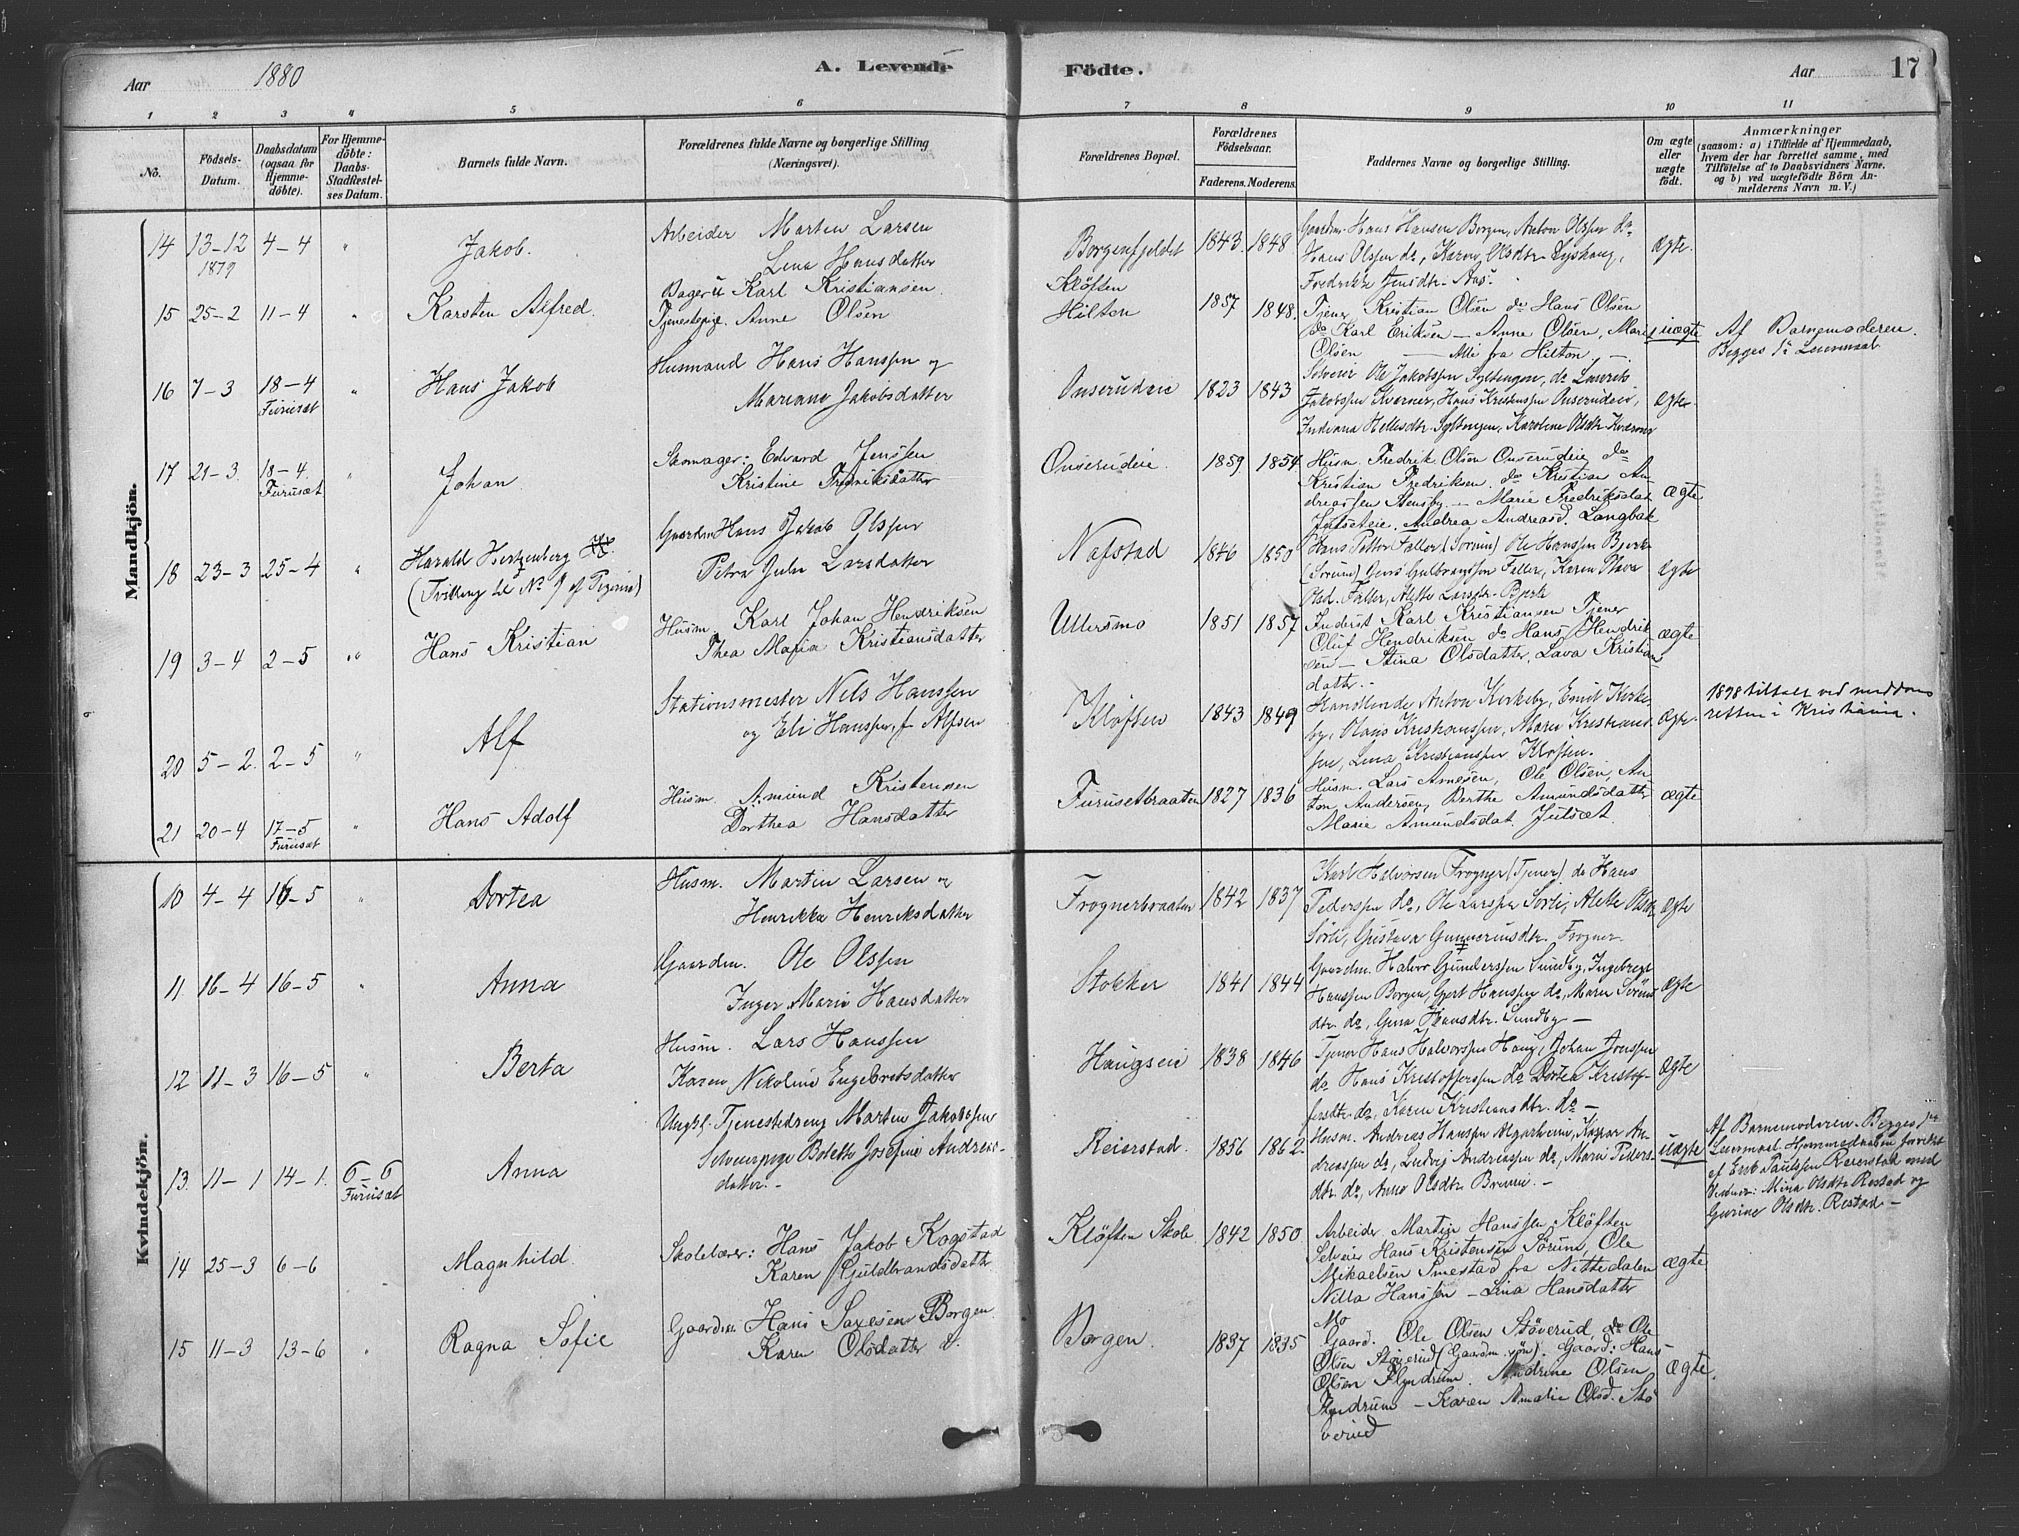 Aar 1880 A. Levende Födte. Aar 17
1 2 3 4 5 6 7 8 9 10 11
No.
Födsels-Datum.
Daabsdatum (ogsaa for Hjemmedöbte).
For Hjemmedöbte: Daabs-Stadfæstelses Datum.
Barnets fulde Navn.
Forældrenes fulde Navne og borgerlige Stilling (Næringsvei).
Forældrenes Bopæl.
Forældrenes Födselsaar.
Faderens. Moderens.
Faddernes Navne og borgerlige Stilling.
Om ægte eller uægte födt.
Anmærkninger
(saasom: a) i Tilfælde af Hjemmedaab, hvem der har forrettet samme, med Tilföielse af to Daabsvidners Navne, og b) ved uægtefödte Börn Anmelderens Navn m. V.)
Mandkjön.
14 13-12 1879 4-4 " Jakob. Arbeider Martin Larsen
Lina Hansdatter
Borgenfjeldet 1843. 1848
Gaardm. Hans Hansen Borgen, Anton Olssen do
Hans Olssen do, Karen Olsdtr.
Fredrikke Jensdtr. Aas.
ægte.
15 25-2 11-4 " Karsten Alfred. Bager u Karl Kristiansen
Tjenestepige. Anne Olsen
Klöften
Hilton 1857 1848.
Tjener Kristian Olsen do Hans Olsen
do Karl Eriksen — Anne Olsen, Marie
Olsen — Alli fra Hilton.
uægte
Af Barnemoderen.
Begges 1ste Leiermaal
16 7-3 18-4 Furusæt " Hans Jakob Husmand Hans Hanssen og
Mariane Jakobsdatter
Onserudeie 1823 1843
Selveier Ole Jakobssen do
Jakobssen Kværner, Hans Kristenssen Onserudeie,
Karoline Olsdtr. Kværner
ægte.
17 21-3. 18-4. Furusæt " Johan Skomager: Edvard Jenssen
Kristine Fredriksdatter
Onserudeie. 1859 1854
Husm. Fredrik Olsen Onserudeie do
Kristian Fredriksen. do Kristian An
dreassen Stensby — Marie Fredriksdat
Julseteie. Andrea Andreasd. Langbak
ægte
18 23-3 25-4 " Harald Hertzenberg
(Tvilling til No 9 af Pigerne)
Gaardm Hans Jakob Olssen
Petra Julie Larsdatter
Nafstad 1846 1850
Hans Petter Faller (Sörum) Ole Hanssen Bjerke
(Sörum) Jens Gulbranssen Faller, Karen Olava
Olsd. Faller, Alette Larsdtr. Bjerke
ægte
19 3-4 2-5 " Hans Kristian Husm. Karl Johan Hendriksen
Thea Maria Kristiansdatter
Ullersmo 1851 1857
Inderst Karl Kristiansen Tjener
Oluf Hendriksen do Hans Hendrik
sen — Stina Olsdatter, Lava Kristian
datter. -
ægte
20 5-2. 2-5 " Alf Stationsmester Nils Hanssen
og Eli Hanssen, f. Alfsen
Klöften 1843 1849
Handlende Anton Kirkeby, Emil Kirke
by, Maren Kristians
sen, Lina Kristianssen Klöften.
ægte.
1898 tiltalt ved meddoms
retten i Kristiania.
21 20-4 17-5 Furusæt " Hans Adolf Husm. Amund Kristensen
Dorthea Hansdatter
Furusetbraaten 1827 1836
Husm. Lars Arnesen, Ole Olsen, An
ton Andersen, Berthe Amundsdatter
Marie Amundsdat Julsæt.
ægte
Kvindekjön.
10 4-4 16-5 " Dortea Husm. Martin Larsen og
Henrikke Henriksdatter
Frognerbraaten 1842 1837
Karl Halvorsen Frogner (Tjener) do Hans
Pederssen do, Ole Larssen Sörli, Alette Olsdtr
Sörli, Gustava Gunneriusdtr. Frogner.
ægte
11. 16-4 16-5 " Anna Gaardm. Ole Olssen
Inger Marie Hansdatter
Stokker 1841 1844
Gaardm. Halvor Gunderssen Sundby, Ingebregt
Hanssen Borgen, Gjert Hanssen do, Maren Sören
dtr. do, Gina Hansdtr. Sundby —
ægte
12 11-3 16-5 " Berta Husm. Lars Hanssen
Karen Nikoline Engebretsdatter
Haugseie 1838 1846
Tjener Hans Halvorssen Haug, Johan Jonssen
do Hans Kristofferssen do Dortea Kristof-
fersdtr. do, Karen Kristiansdtr. do —
ægte
13. 11-1 14-1. 6-6 Furusæt Anna Ungkl. Tjenestedreng Martin Jakobssen
Bolette Josefine Andreas-
datter.-
Reierstad. 1856 1862.
Husm. Andreas Hanssen Algarheim, Kaspar An
dreassen do, Ludvig Andreassen do, Maren Peders-
dtr. do, Anne Olsdtr.
uægte
Af Barnemoderen. Begges 1ste
Leiermaal. Hjemmedaaben forrettet
af Erik Paulssen Reierstad med
Vidner: Mina Olsdtr. Restad og
Gurine Olsdtr. Restad —
14 25-3 6-6 Magnhild. Skolelærer: Hans Jakob Kogstad
Karen Guldbrandsdatter
Klöften Skole 1842 1850
Arbeider Martin Hanssen, Klöften
Selveier Hans Kristensen Sörum, Ole
Mikaelsen Smestad fra Nittedalen
Nilla Hanssen — Lina Hansdatter
Mo
ægte
15 11-3 13-6 " Ragna Sofie Gaardm. Hans Saxesen Borgen
Karen Olsdatter
Borgen 1837 1835
Gaard. Ole Olsen Stöverud, do Ole
Olsen Stöverud (Gaardm. sön). Gaard: Hans
Olsen Flyndrum. Andrine Olsen
Flyndrum — Karen Amalie Olsd. Stö
verud
ægte.